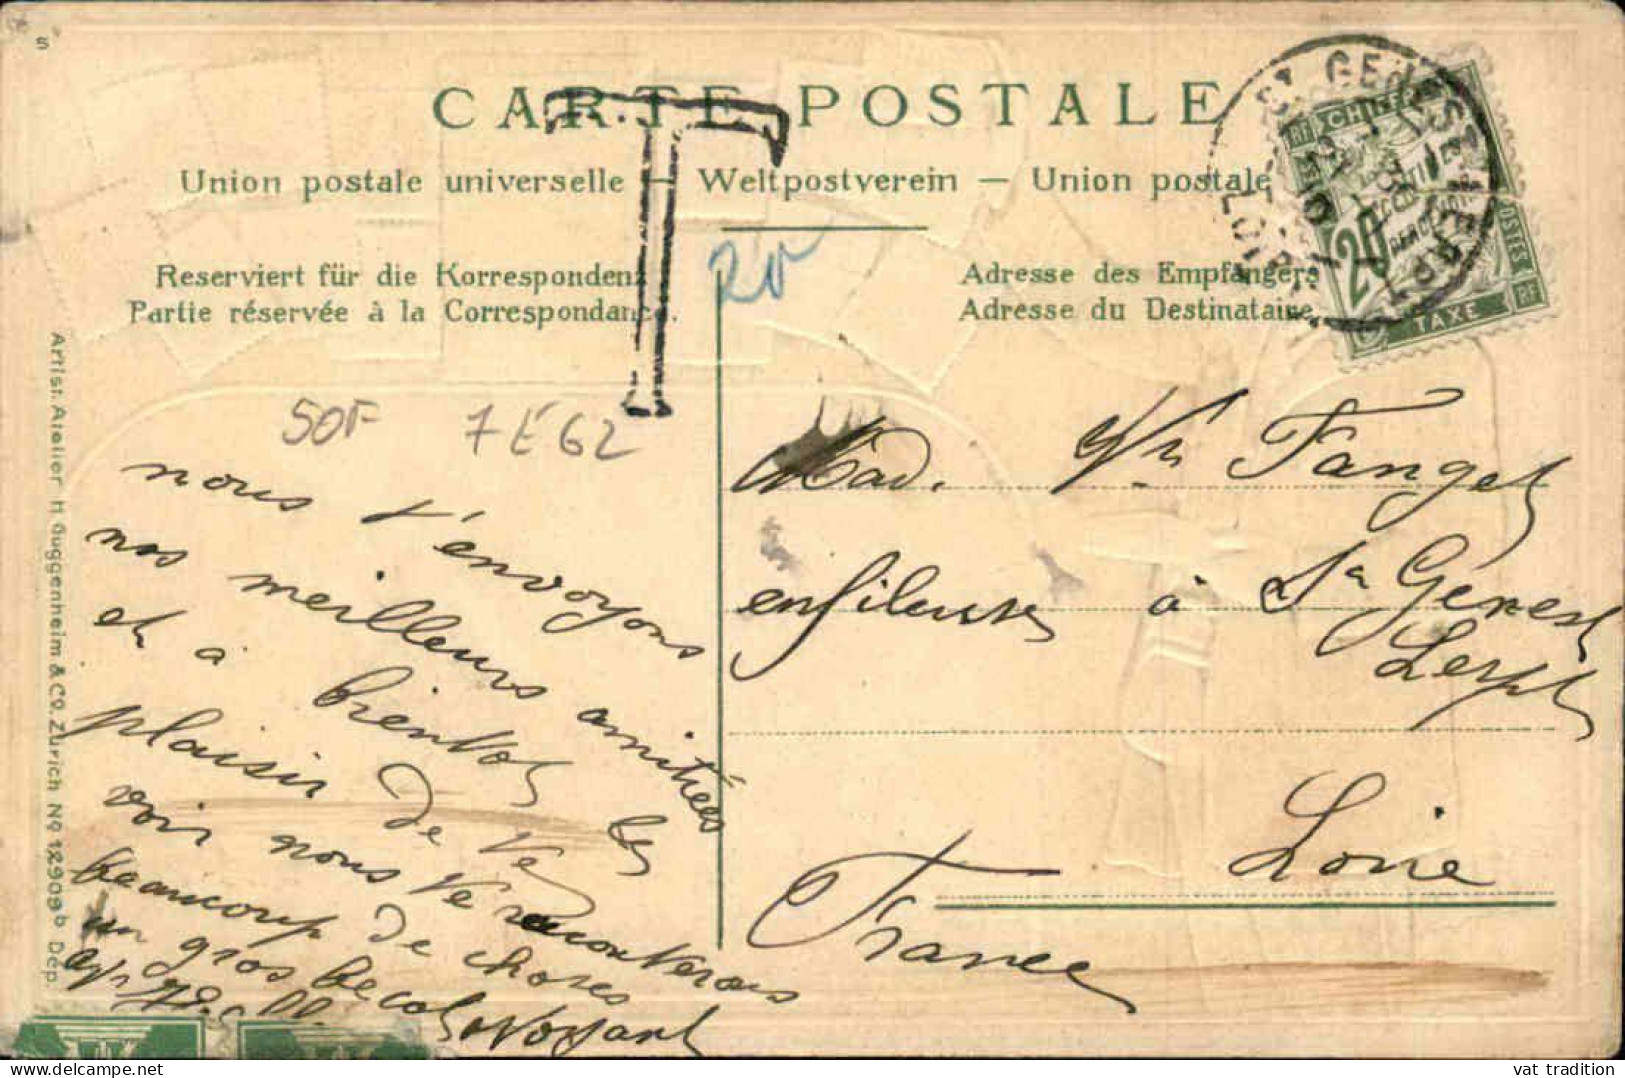 S
CARTE POSTALE
T
Union postale universelle — Weltpostverein — Union postale
20
Reserviert für die Korrespondenz
Partie réservée à la Correspondance.
Adresse des Empfängers
Adresse du Destinataire
CHIFFRE
RF
20
POSTES
TAXE
RF
50F 7E62
nous t'envoyons
nos meilleurs amitiées
et à bientot le
plaisir de te
voir nous te raconterais
beaucoup de choses
un gros becot
Mad. Vve Fanget
enfileuse à St Genest
Lerpt
Loire
France
Artist. Atelier H. Guggenheim & Co. Zürich No 12909b Dép.
vat tradition